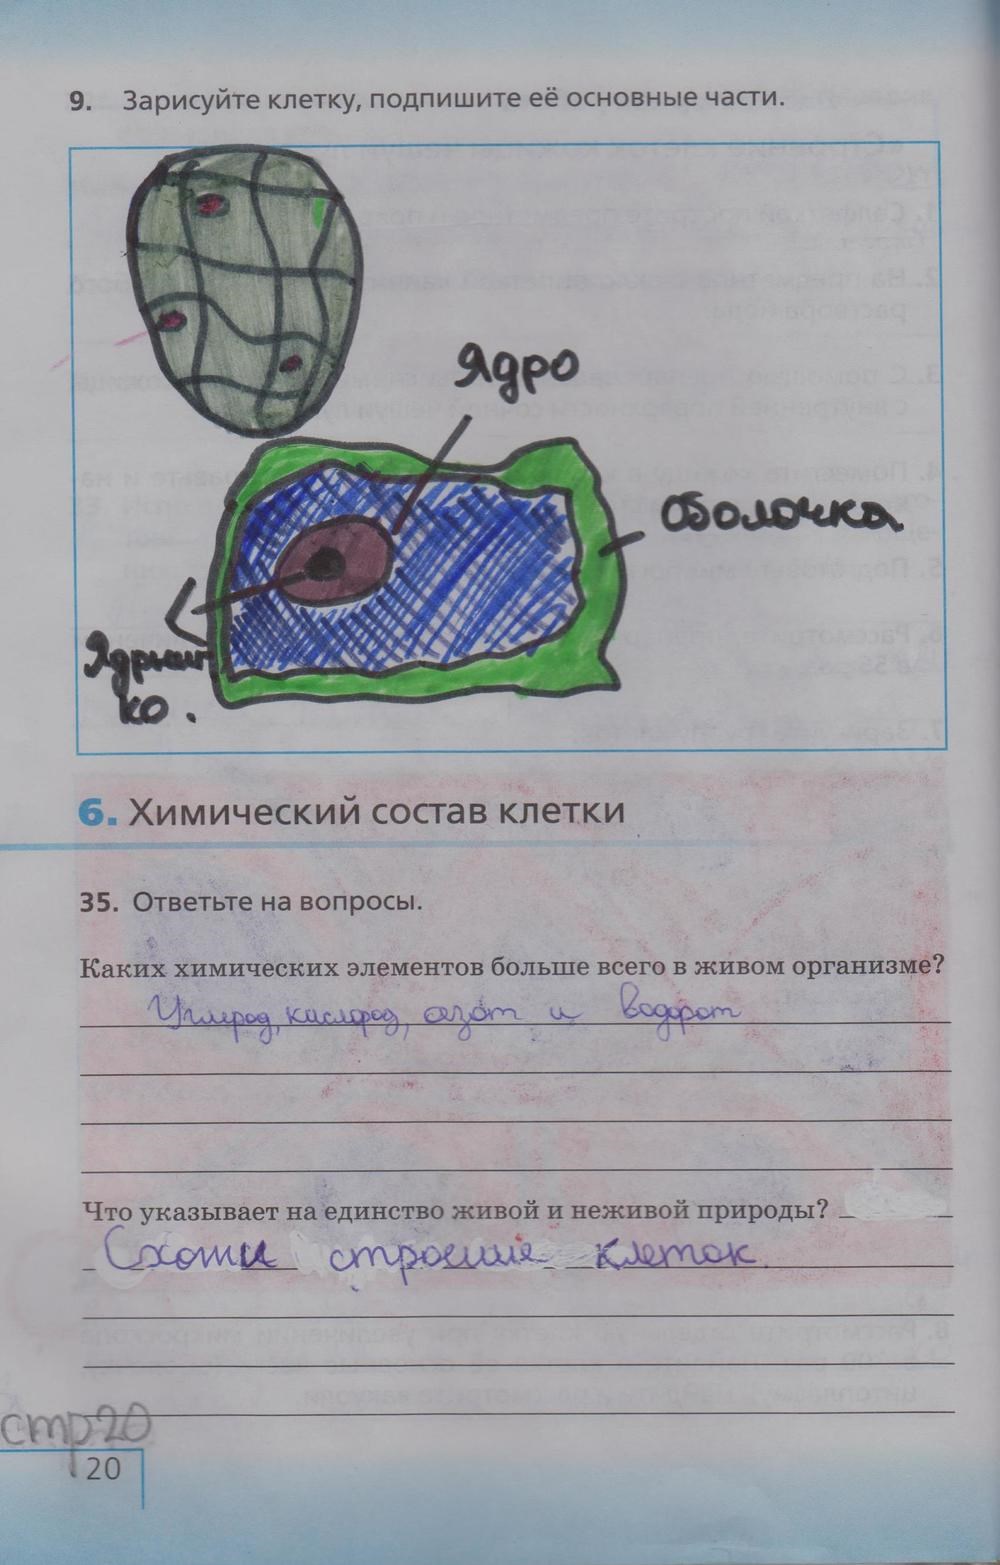 9. Зарисуйте клетку, подпишите её основные части.
Ядро
Оболочка
Ядрыш
ко.
6. Химический состав клетки
35. Ответьте на вопросы.
Каких химических элементов больше всего в живом организме?
Углерод, кислород, азот и водорот
Что указывает на единство живой и неживой природы?
Схожи строение клеток.
стр20
20